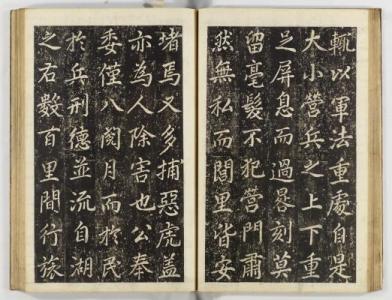 輒以軍法重處自是
大小營兵之上下重
足屏息而過晷刻莫
留毫髮不犯營門肅
然無私而閭里皆安
堵焉又多捕惡虎盖
亦為人除害也公奉
委僅八閱月而於民
於兵刑德並流自湖
之右數百里間行旅